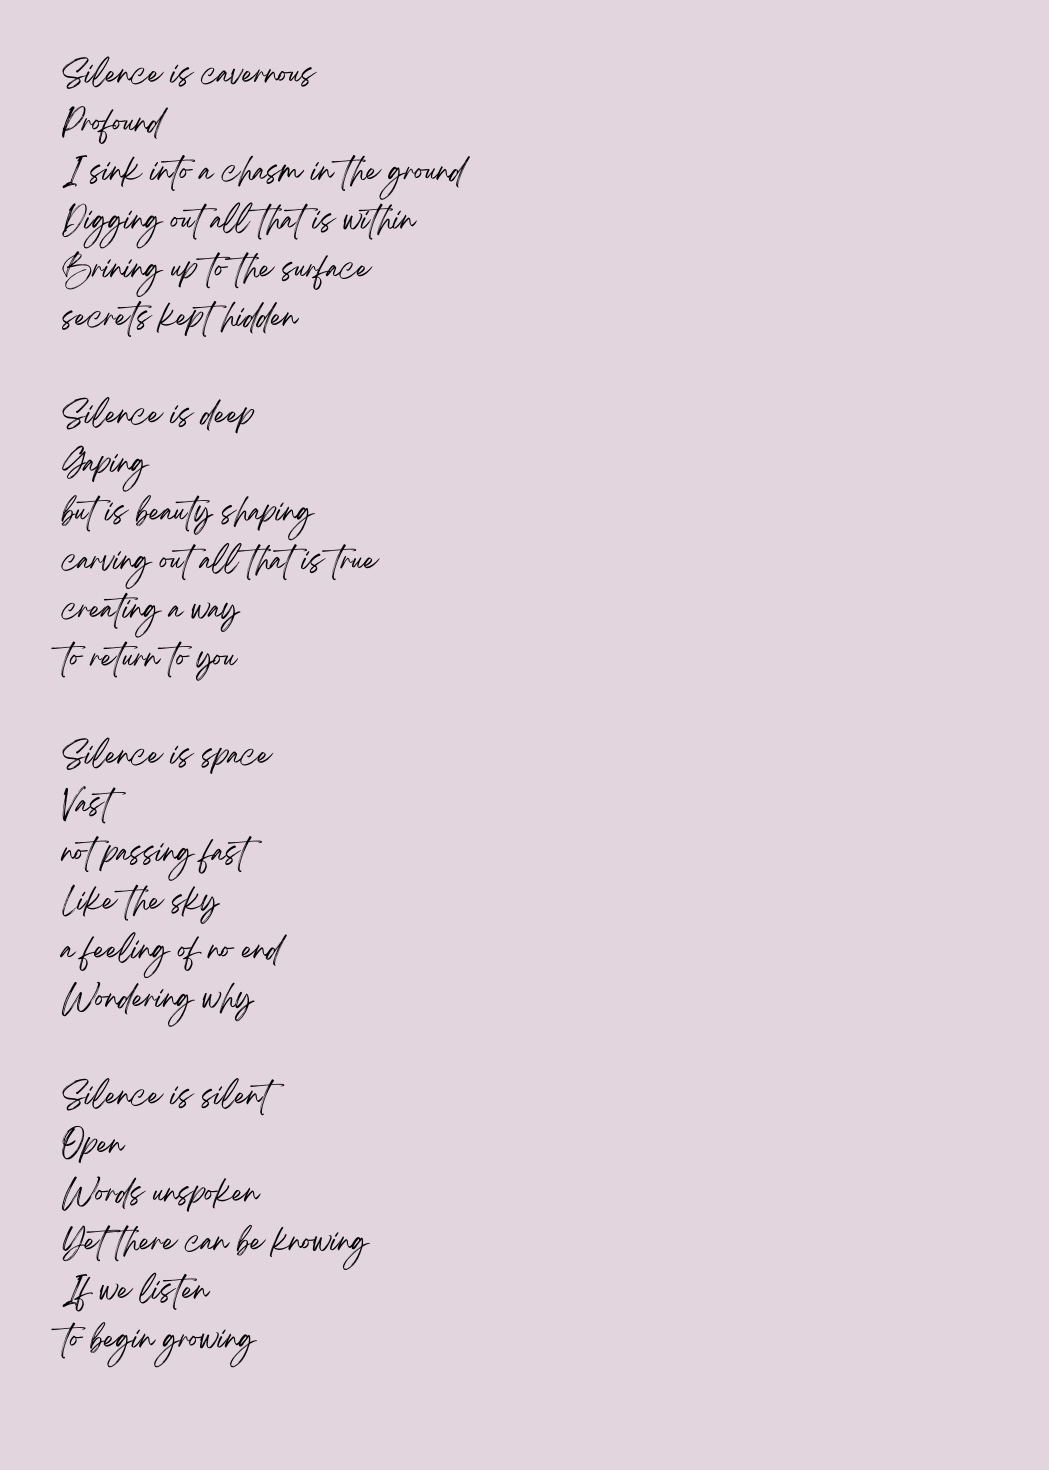 Silence is cavernous
Profound
I sink into a chasm in the ground
Digging out all that is within
Brining up to the surface
secrets kept hidden

Silence is deep
Gaping
but is beauty shaping
carving out all that is true
creating a way
to return to you

Silence is space
Vast
not passing fast
Like the sky
a feeling of no end
Wondering why

Silence is silent
Open
Words unspoken
Yet there can be knowing
If we listen
to begin growing